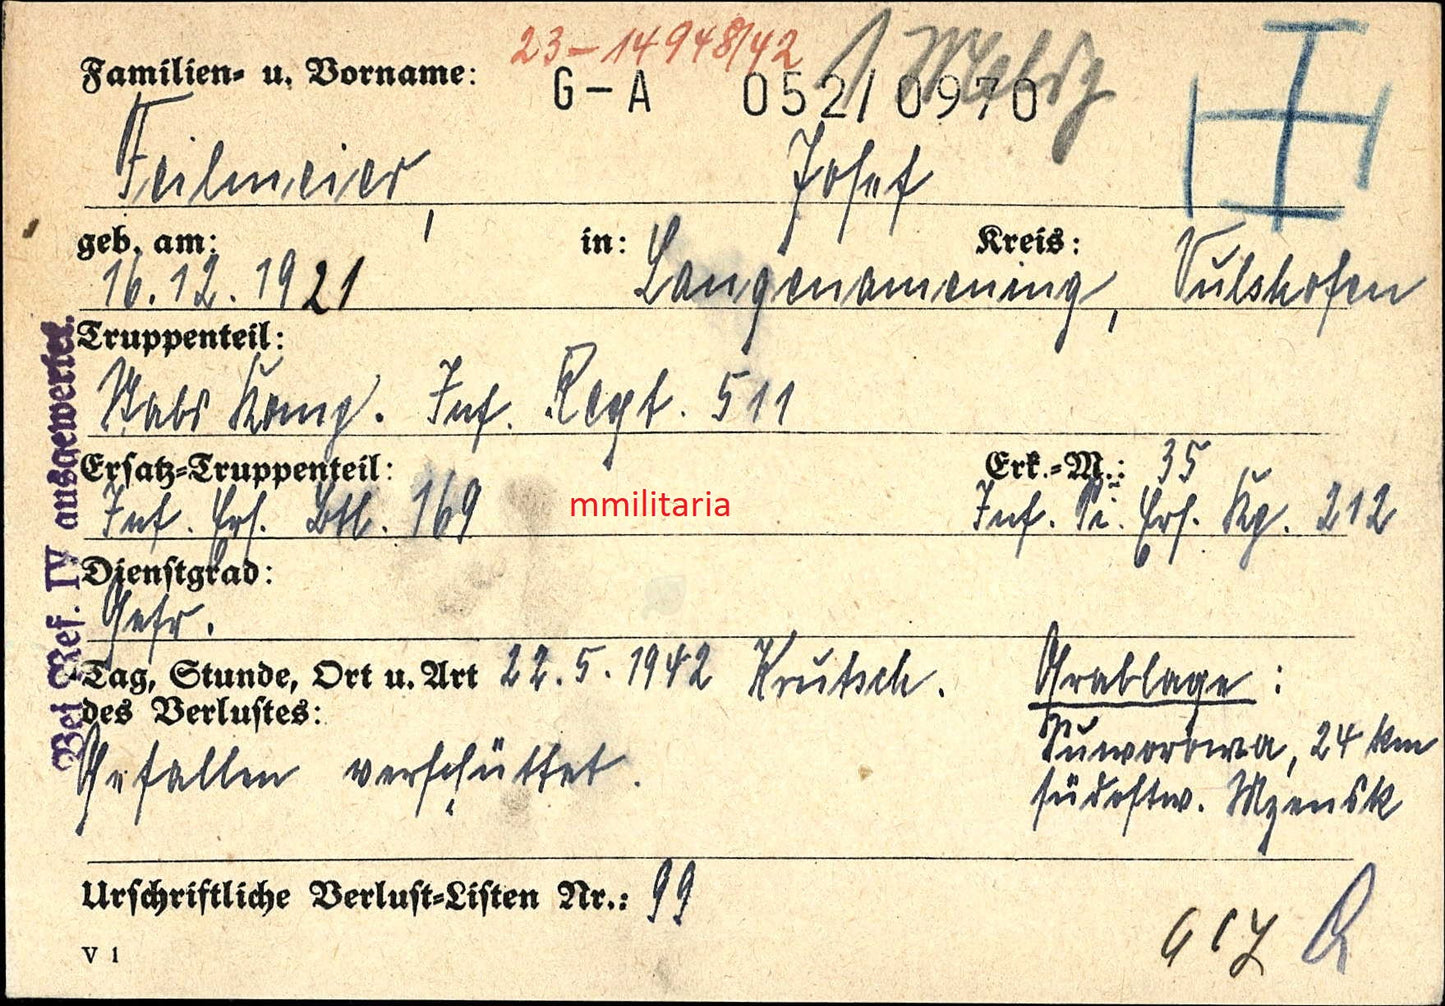 23-14948/42
Familien- u. Vorname: G-A 052/0970
Feilmeier, Josef
geb. am: in: Kreis:
16.12.1921 Langenamming, Vilshofen
Truppenteil:
Stabs Komp. Inf. Regt. 511
Ersatz-Truppenteil: Erk.-M.: 35
Inf. Ers. Btl. 169 mmilitaria Inf. Pi. Ers. Kp. 212
Dienstgrad:
Gefr.
Tag, Stunde, Ort u. Art 22.5.1942 Krutsch. Grablage:
des Verlustes: Suworowa, 24 km
Gefallen verschüttet. südostw. Mzensk
Urschriftliche Verlust-Listen Nr.: 99
V 1
Bei Ref. IV ausgewertet.